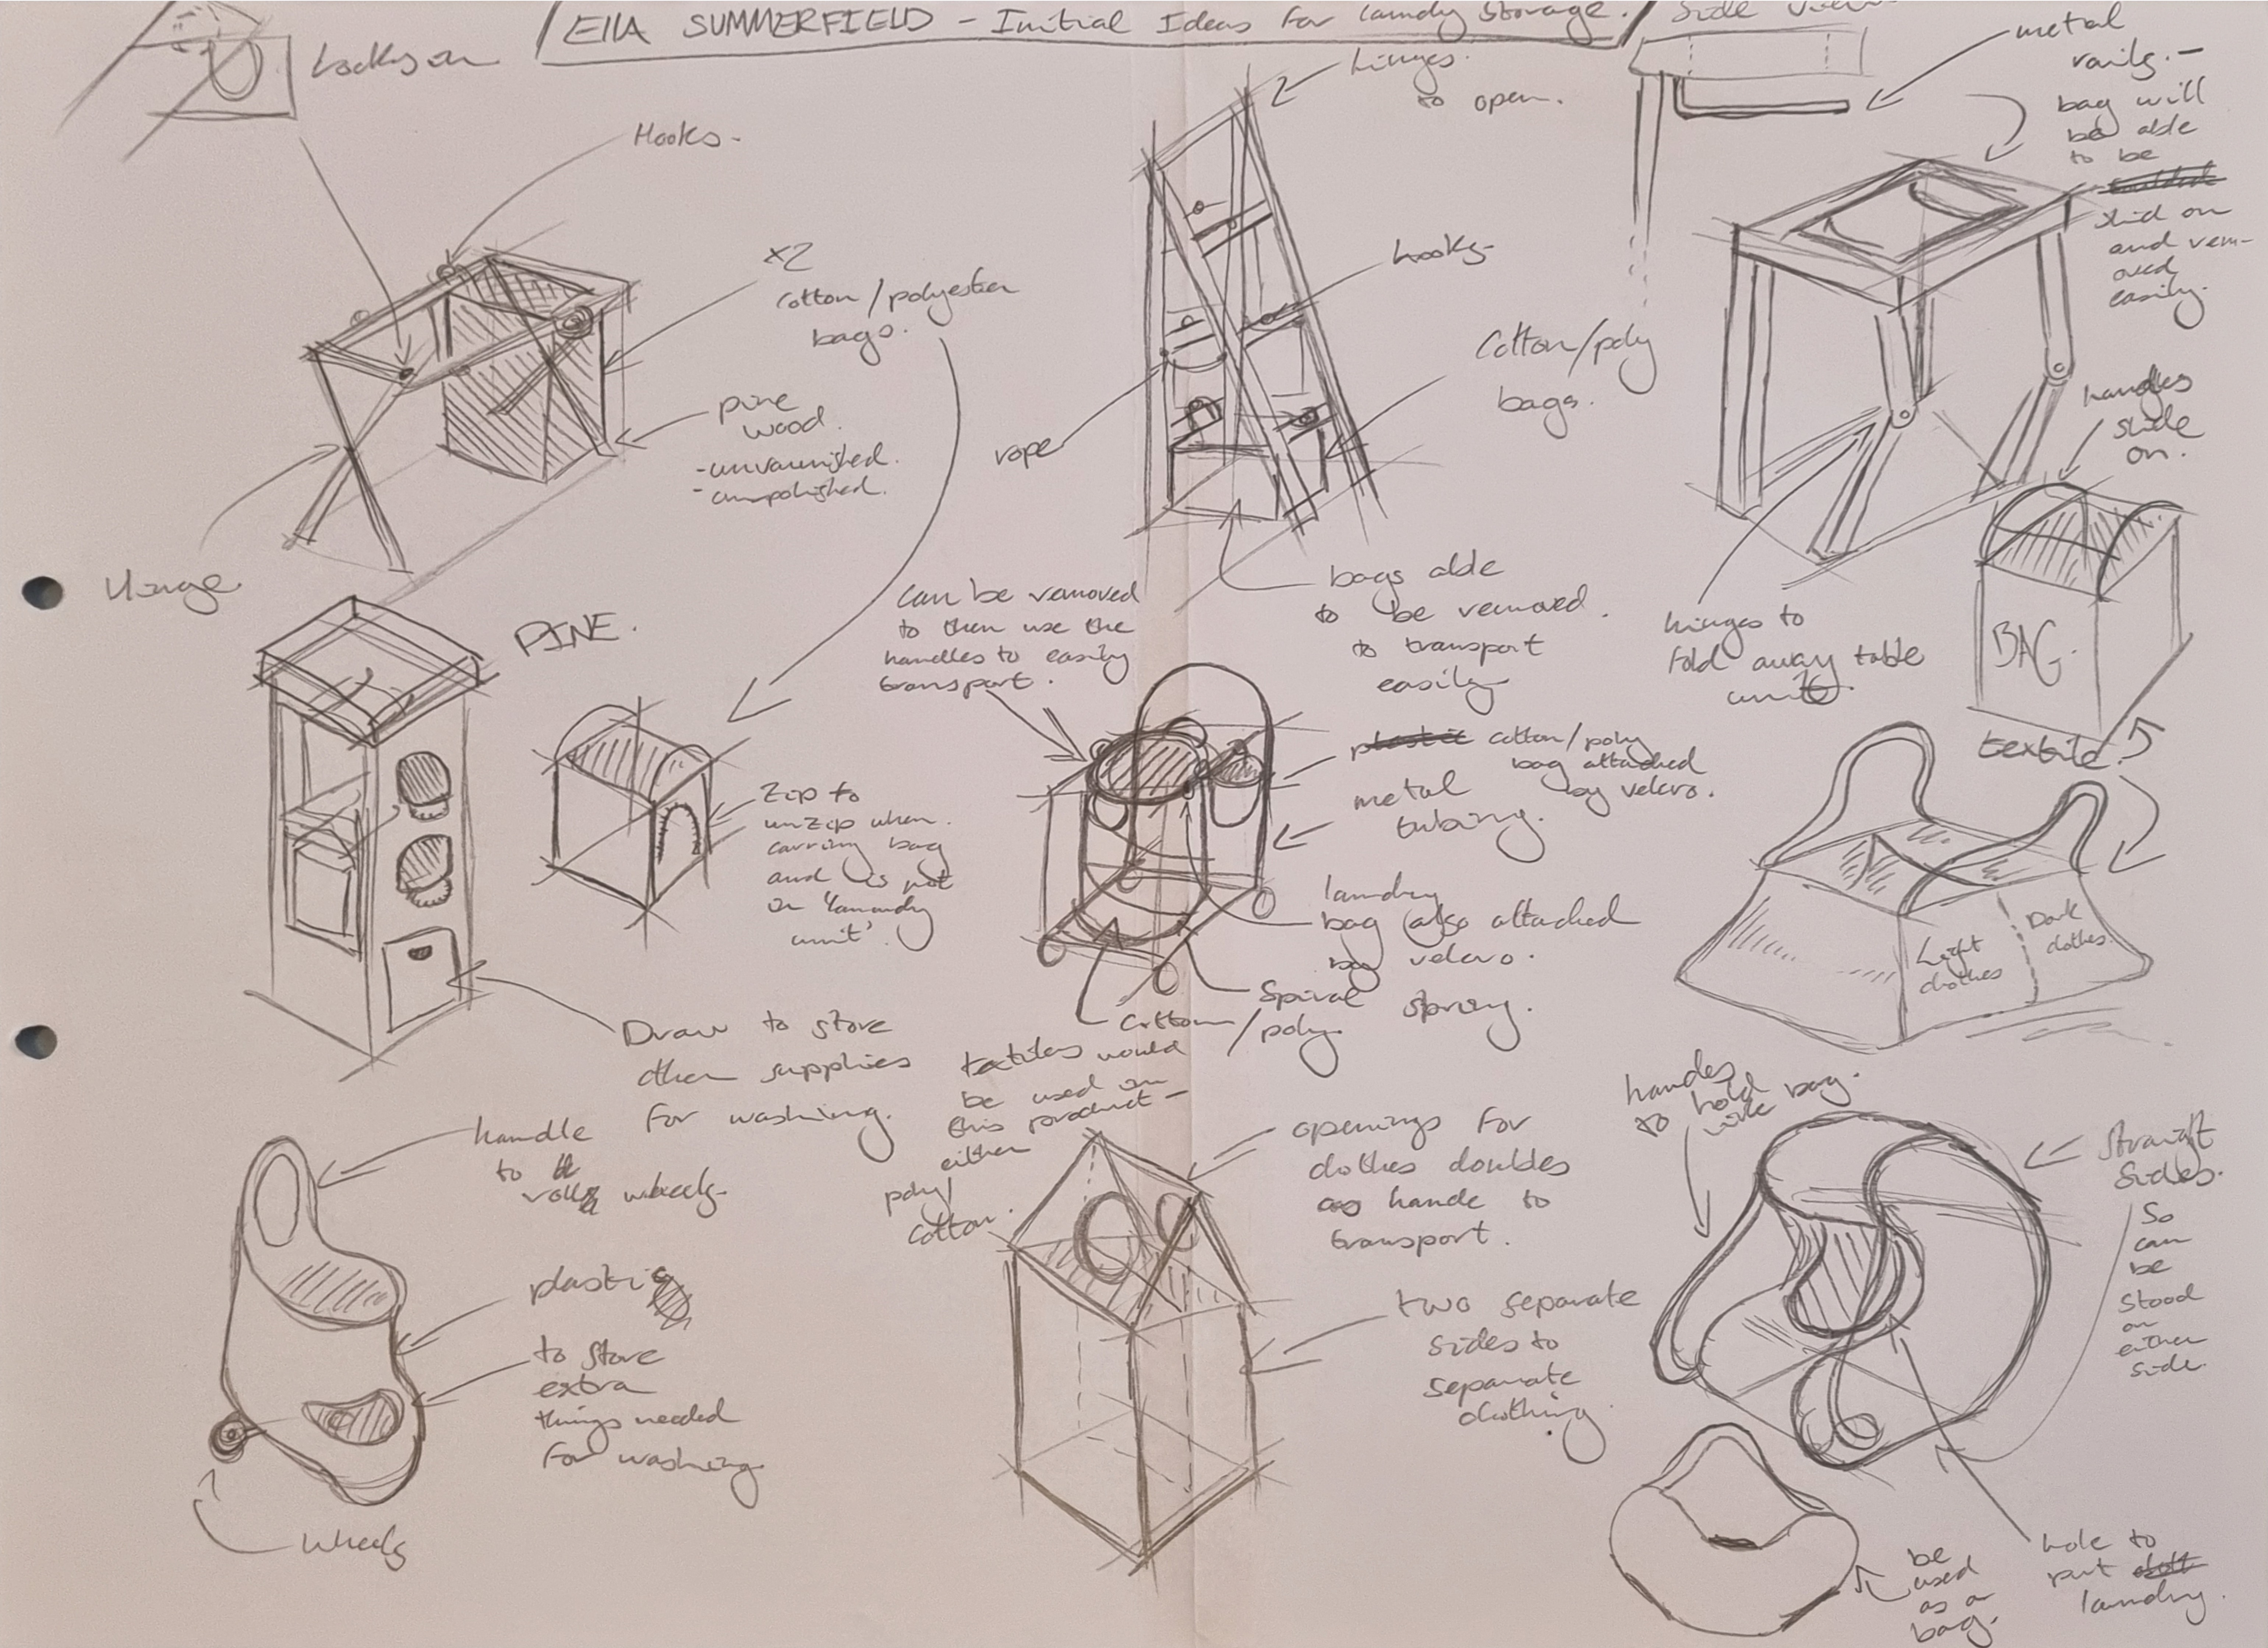 EllA SUMMERFIELD - Initial Ideas For laundry Storage.
Side View
metal
rails. -
bag will
be able
to be
slid on
and rem-
oved
easily.
Hooks.
hinges
to open.
x2
cotton/polyester
bags.
hooks-
Cotton/poly
bags.
pine
wood.
- unvarnished.
- unpolished.
rope
handles
slide
on.
Hinge
PINE.
can be removed
to then use the
handles to easily
transport.
bags able
to be removed.
to transport
easily
hinges to
fold away table
unit.
BAG.
textile.
Zip to
unzip when
carring bag
and is not
on 'laundry
unit'.
cotton/poly
bag attached
by velcro.
metal
tubing.
laundry
bag (also attached
by velcro.
Spiral spring.
Cotton
/poly.
Light
clothes
Dark
clothes.
Draw to store
other supplies
for washing.
textiles would
be used in
this product -
either
poly/
cotton.
handle
to
roll wheels-
openings for
clothes doubles
as hande to
transport.
handes
to hold
bag.
Straight
Sides.
So
can
be
stood
on
either
side.
plastic
to store
extra
things needed
for washing.
two separate
sides to
separate
clothing.
Wheels
be
used
as a
bag.
hole to
put
laundry.